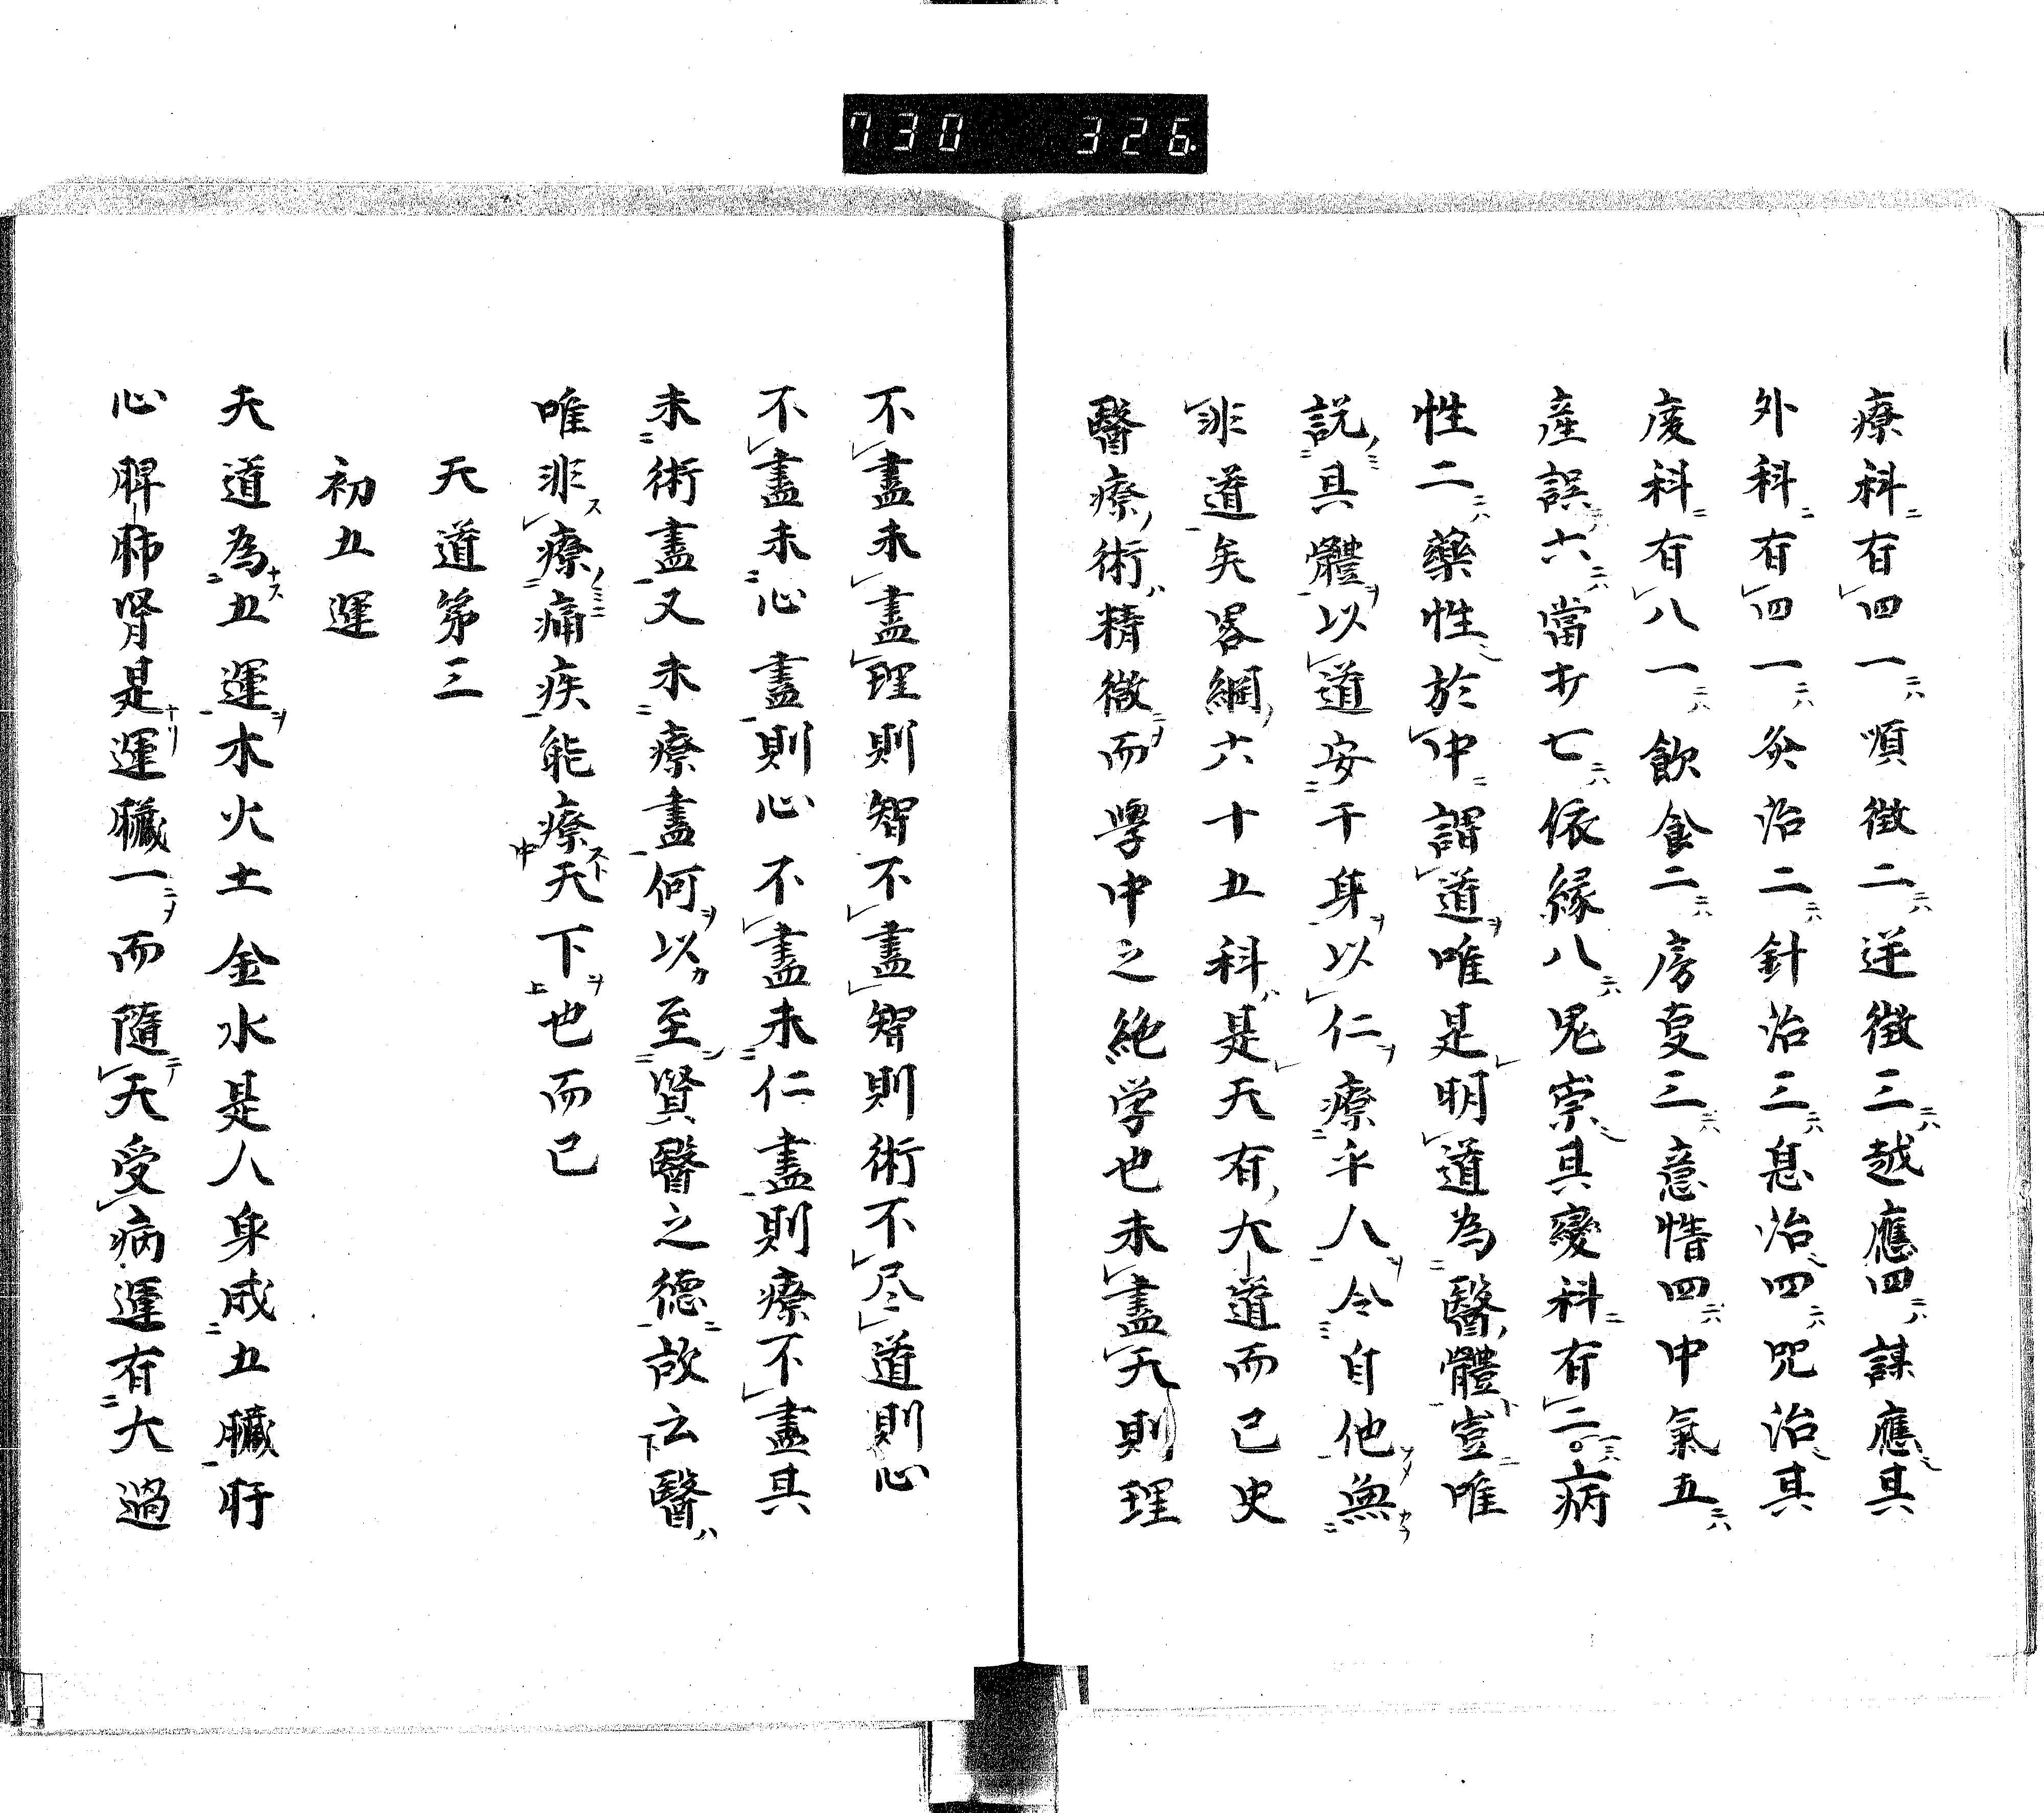 730 326
療科有四一順徴二逆徴三越應四謀應其
外科有四一灸治二針治三息治四咒治其
度科有八一飲食二房叓三意惜四中氣五
産誤六當才七依縁八鬼祟其變科有二病
性二藥性於中謂道唯是明道為醫體豈唯
説其體以道安干身以仁療乎人令自他無
非道矣畧綱六十五科是天有大道而已史
醫療術精微而學中之絶学也未盡天則理
不盡未盡理則智不盡智則術不尽道則心
不盡未心盡則心不盡未仁盡則療不盡其
未術盡又未療盡何以至賢醫之德故云醫
唯非療痛疾能療天下也而已
天道第三
初五運
天道為五運木火土金水是人身成五臓肝
心脾肺腎是運臓一而隨天受病運有大過